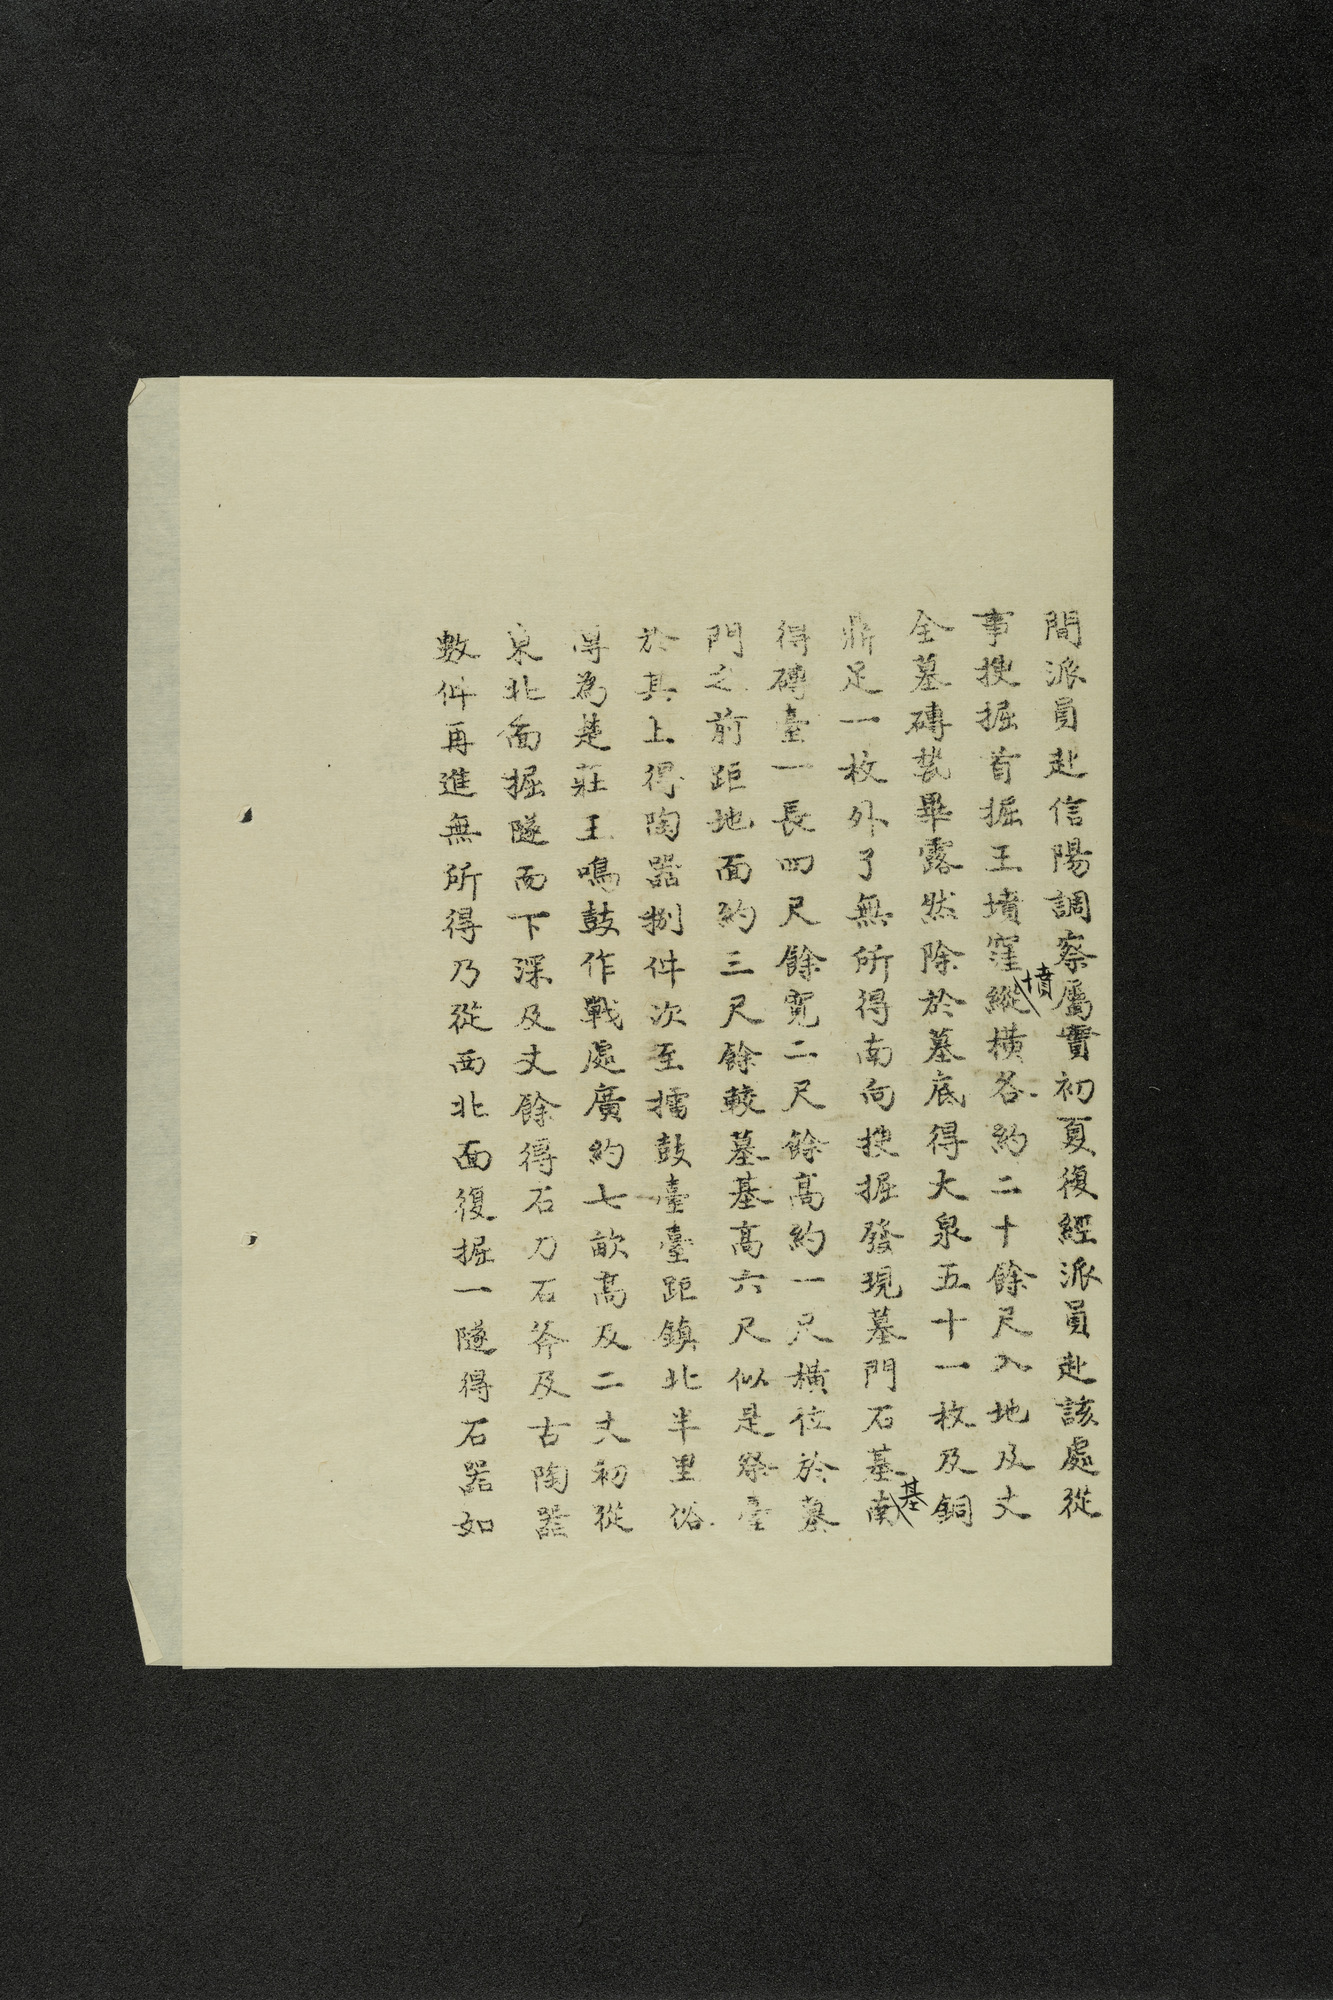 間派員赴信陽調察屬實初夏復經派員赴該處從
事搜掘首掘王墳窪墳縱橫各約二十餘尺入地及丈
全墓磚甃畢露然除於墓底得大泉五十一枚及銅
鼎足一枚外了無所得南向搜掘發現墓門石基基南
得磚臺一長四尺餘寬二尺餘高約一尺橫位於墓
門之前距地面約三尺餘較墓基高六尺似是祭臺
於其上得陶器捌件次至擂鼓臺臺距鎮北半里俗
傳為楚莊王鳴鼓作戰處廣約七畝高及二丈初從
東北面掘隧而下深及丈餘得石刀石斧及古陶器
數件再進無所得乃從西北面復掘一隧得石器如